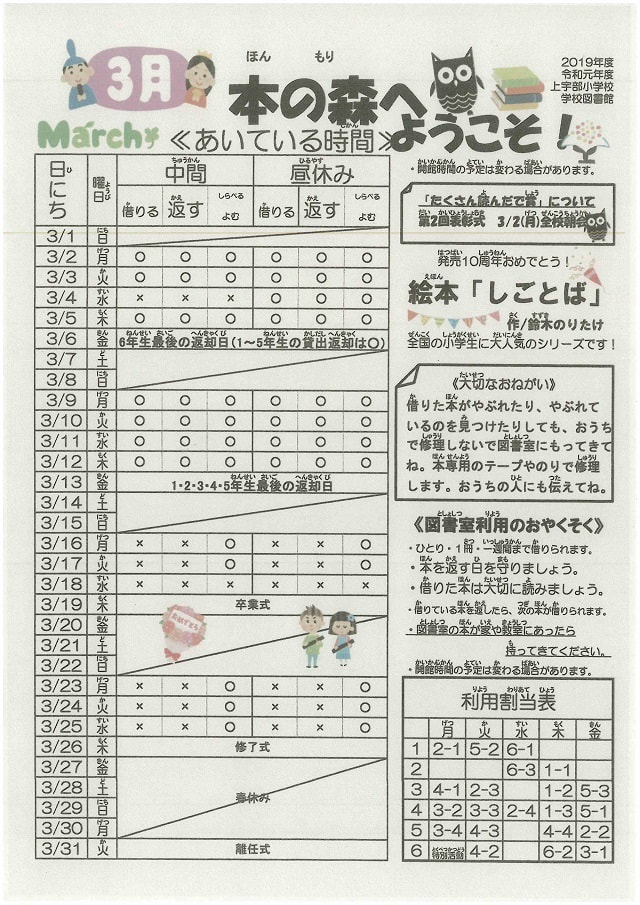 3月
March
ほん もり
本の森へ
ようこそ！
2019年度
令和元年度
上宇部小学校
学校図書館
≪あいている時間≫
じかん
・開館時間の予定は変わる場合があります。
日にち 曜日 中間 昼休み
ようび ちゅうかん ひるやすみ
借りる 返す しらべる よむ 借りる 返す しらべる よむ
3/1 日
3/2 月 ○ ○ ○ ○ ○ ○
3/3 火 ○ ○ ○ ○ ○ ○
3/4 水 × × × ○ ○ ○
3/5 木 ○ ○ ○ ○ ○ ○
3/6 金 6年生最後の返却日(1～5年生の貸出返却は○)
3/7 土
3/8 日
3/9 月 ○ ○ ○ ○ ○ ○
3/10 火 ○ ○ ○ ○ ○ ○
3/11 水 ○ ○ ○ ○ ○ ○
3/12 木 ○ ○ ○ ○ ○ ○
3/13 金 1・2・3・4・5年生最後の返却日
3/14 土
3/15 日
3/16 月 × × ○ × × ○
3/17 火 × × ○ × × ○
3/18 水 × × × × × ×
3/19 木 卒業式
3/20 金
3/21 土
3/22 日
3/23 月 × × ○ × × ○
3/24 火 × × ○ × × ○
3/25 水 × × ○ × × ○
3/26 木 修了式
3/27 金
3/28 土
春休み
3/29 日
3/30 月
3/31 火 離任式
「たくさん読んだで賞」について
第2回表彰式 3/2(月)全校朝会
発売10周年おめでとう！
絵本「しごとば」
作/鈴木のりたけ
全国の小学生に大人気のシリーズです！
《大切なおねがい》
借りた本がやぶれたり、やぶれて
いるのを見つけたりしても、おうち
で修理しないで図書室にもってきて
ね。本専用のテープやのりで修理
します。おうちの人にも伝えてね。
《図書室利用のおやくそく》
・ひとり・1冊・一週間まで借りられます。
・本を返す日を守りましょう。
・借りた本は大切に読みましょう。
・借りている本を返したら、次の本が借りられます。
・図書室の本が家や教室にあったら
持ってきてください。
・開館時間の予定は変わる場合があります。
利用割当表
月 火 水 木 金
1 2-1 5-2 6-1
2 6-3 1-1
3 4-1 2-3 1-2 5-3
4 3-2 3-3 2-4 1-3 5-1
5 3-4 4-3 4-4 2-2
6 特別活動 4-2 6-2 3-1